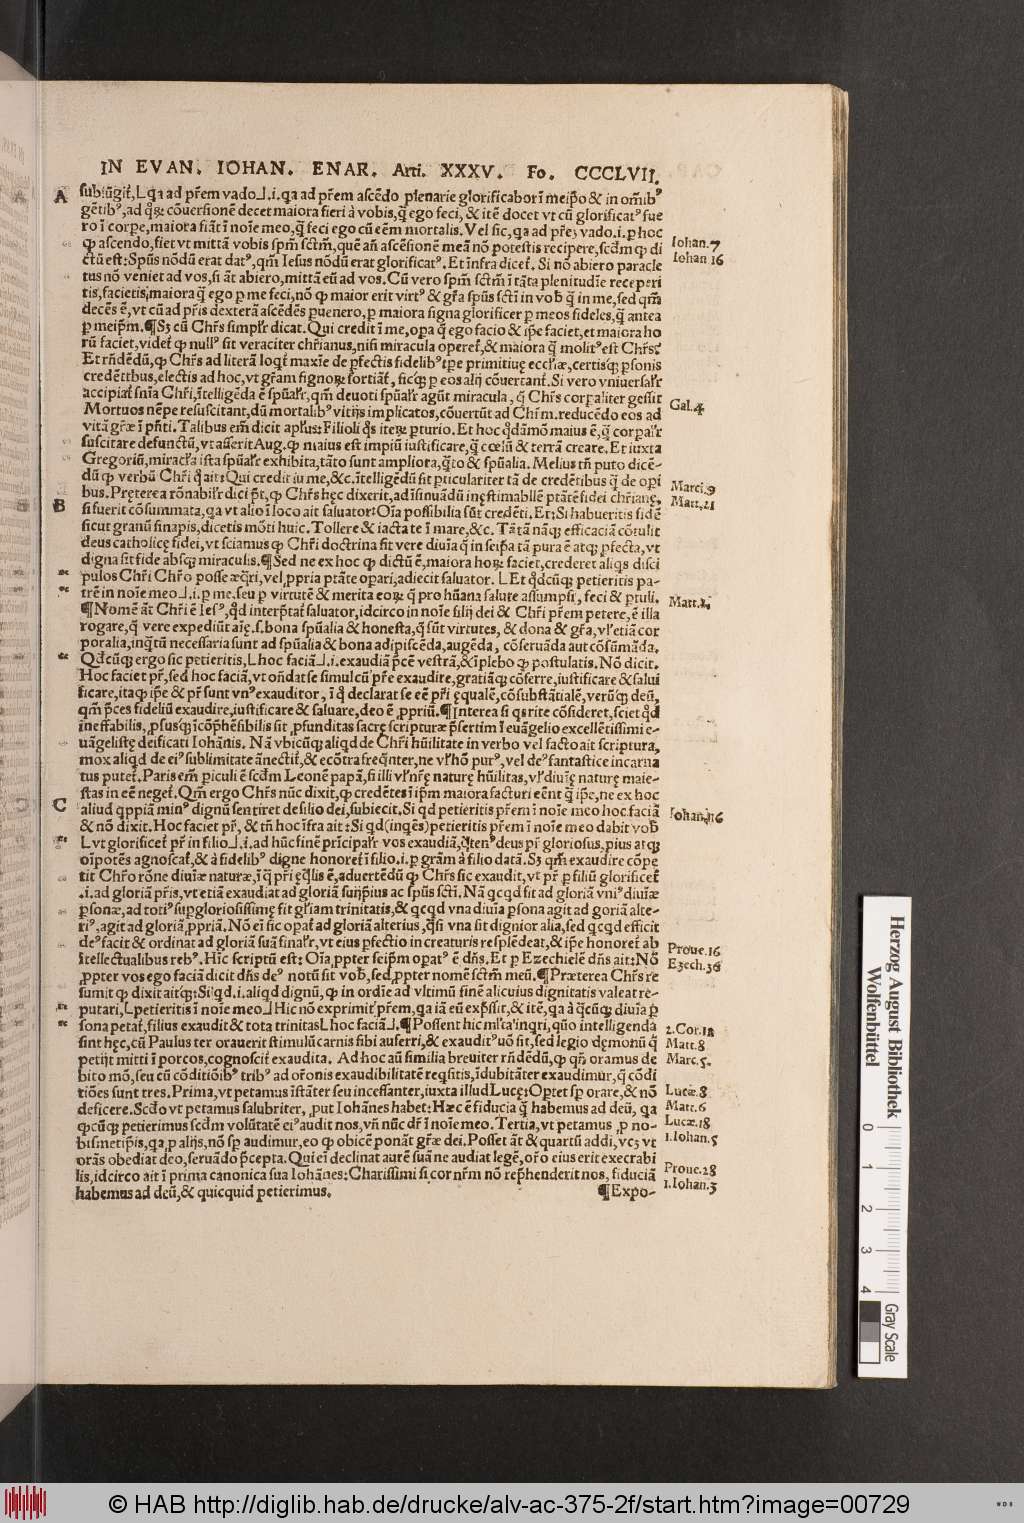 IN EVAN. IOHAN. ENAR. Arti. XXXV. Fo. CCCLVII.
A
subiūgit, Lqa ad prem vado⅃.i.qa ad prem ascēdo plenarie glorificabor ī meipo & in omīb9
gētib9, ad qs cōuersionē decet maiora fieri à vobis, q̄ ego feci, & itē docet vt cū glorificat9 fue
ro ī corpe, maiora fiāt ī noīe meo, q̄ feci ego cū eēm mortalis. Vel sic, qa ad prez vado.i.p hoc
qp ascendo, fiet vt mittā vobis spm sctm, quē añ ascēsionē meā nō potestis recipere, scdm qp di
ctū est: Spūs nōdū erat dat9, qm Iesus nōdū erat glorificat9. Et infra dicet. Si nō abiero paracle
tus nō veniet ad vos, si āt abiero, mittā eū ad vos. Cū vero spm sctm ī tāta plenitudīe receperi
tis, facietis maiora q̄ ego p me feci, nō qp maior erit virt9 & gra spūs sctī in vob q̄ in me, sed qm
decēs ē, vt cū ad pris dexterā ascēdēs puenero, p maiora signa glorificer p meos fideles, q̄ antea
p meipm. ¶Sz cū Chrs simplr dicat. Qui credit ī me, opa q̄ ego facio & ipe faciet, et maiora ho
rū faciet, videt qp null9 sit veraciter chrianus, nisi miracula operet, & maiora q̄ molit9 est Chrs?
Et rñdēdū, qp Chrs ad literā loqt maxīe de pfectis fidelib9 tpe primitiuę ecclīæ, certisq; psonis
credētibus, electis ad hoc, vt gram signoꝝ sortiāt, sicq; p eos alij cōuertant. Si vero vniuersalr
accipiat snīa Chri, ītelligēda ē spūalr, qm deuoti spūalr agūt miracula, q̄ Chrs corpaliter gessit
Mortuos nēpe resuscitant, dū mortalib9 vitijs implicatos, cōuertūt ad Chrm. reducēdo eos ad
vitā græ ī pñti. Talibus em dicit aplus: Filioli qs iteꝝ pturio. Et hoc qdāmō maius ē, q̄ corpalr
suscitare defunctū, vt asserit Aug. qp maius est impiū iustificare, q̄ cœlū & terrā creare. Et iuxta
Gregoriū, miracla ista spūalr exhibita, tāto sunt ampliora, qto & spūalia. Melius tñ puto dicē-
dū qp verbū Chri q̄ ait: Qui credit iu me, &c. ītelligēdū sit pticulariter tā de credētibus q̄ de opi
bus. Pręterea rōnabilr dici pt, qp Chrs hęc dixerit, ad īsinuādū inęstimabilē ptātē fidei chrianę,
B
si fuerit cōsummata, qa vt alio ī loco ait saluator: Oīa possibilia sūt credēti. Et: Si habueritis fidē
sicut granū sinapis, dicetis mōti huic. Tollere & iacta te ī mare, &c. Tātā nāq; efficaciā cōtulit
deus catholicę fidei, vt sciamus qp Chri doctrina sit vere diuīa q̄ in seipa tā pura ē atq; pfecta, vt
digna sit fide absq; miraculis. ¶Sed ne ex hoc qp dictū ē, maiora hoꝝ faciet, crederet aliqs disci
pulos Chri Chro posse æqri, vel ppria ptāte opari, adiecit saluator. LEt qdcūq; petieritis pa-
trē in noīe meo⅃.i.p me. seu p virtutē & merita eoꝝ q̄ pro hūana salute assumpsi, feci & ptuli.
¶Nomē āt Chri ē Ies9, qd interptat saluator, idcirco in noīe filij dei & Chri prem petere, ē illa
rogare, q̄ vere expediūt aīę. s. bona spūalia & honesta, q̄ sūt virtutes, & dona & gra, vl etiā cor
poralia, inqtū necessaria sunt ad spūalia & bona adipiscēda, augēda, cōseruāda aut cōsūmāda.
Qdcūq; ergo sic petieritis, Lhoc faciā⅃.i. exaudiā pcē vestrā, & īplebo qp postulatis. Nō dicit.
Hoc faciet pr, sed hoc faciā, vt oñdat se simul cū pre exaudire, gratiāq; cōferre, iustificare & salui
ficare, itaq; ipe & pr sunt vn9 exauditor, ī q̄ declarat se eē pri ęqualē, cōsubstātialē, verūq; deū,
qm pces fideliū exaudire, iustificare & saluare, deo ē ppriū. ¶Interea si qs rite cōsideret, sciet qd
ineffabilis, psusq; īcōphēsibilis sit pfunditas sacrę scripturæ psertim ī euāgelio excellētissimi e-
uāgelistę deificati Iohānis. Nā vbicūq; aliqd de Chri hūilitate in verbo vel facto ait scriptura,
mox aliqd de ei9 sublimitate ānectit, & ecōtra freqnter, ne vl hō pur9, vel de9 fantastice incarna
tus putet. Paris em piculi ē scdm Leonē papā, si illi vl nrę naturę hūilitas, vl diuīę naturę maie-
stas in eē neget. Qm ergo Chrs nūc dixit, qp credētes ī ipm maiora facturi eēnt q̄ ipe, ne ex hoc
C
aliud qppiā min9 dignū sentiret de filio dei, subiecit. Si qd petieritis prem ī noīe meo hoc faciā
& nō dixit. Hoc faciet pr, & tñ hoc īfra ait: Si qd (inqes) petieritis prem ī noīe meo dabit vob
Lvt glorificet pr in filio⅃.i. ad hūc finē prīcipalr vos exaudiā, qten9 deus pr gloriosus, pius atq;
oīpotēs agnoscat, & à fidelib9 digne honoret ī filio.i.p gram à filio datā. Sz qm exaudire cōpe
tit Chro rōne diuīæ naturæ, ī q̄ pri ęqlis ē, aduertēdū qp Chrs sic exaudit, vt pr p filiū glorificet
.i. ad gloriā pris, vt etiā exaudiat ad gloriā suijpius ac spūs sctī. Nā qcqd fit ad gloriā vni9 diuīæ
psonæ, ad toti9 supgloriosissimę fit gliam trinitatis, & qcqd vna diuīa psona agit ad goriā alte-
ri9, agit ad gloriā ppriā. Nō eī sic opat ad gloriā alterius, qsi vna sit dignior alia, sed qcqd efficit
de9 facit & ordinat ad gloriā suā finalr, vt eius pfectio in creaturis resplēdeat, & ipe honoret ab
ītellectualibus reb9. Hīc scriptū est: Oīa ppter seipm opat9 ē dñs. Et p Ezechielē dñs ait: Nō
ppter vos ego faciā dicit dñs de9 notū sit vob, sed ppter nomē sctm meū. ¶Præterea Chrs re
sumit qp dixit aitq;: Si qd.i. aliqd dignū, qp in ordīe ad vltimū finē alicuius dignitatis valeat re-
putari, Lpetieritis ī noīe meo⅃ Hic nō exprimit prem, qa iā eū expssit, & itē, qa à qcūq; diuīa p
sona petat, filius exaudit & tota trinitas Lhoc faciā⅃. ¶Possent hic mlta inqri, qūo intelligenda
sint hęc, cū Paulus ter orauerit stimulū carnis sibi auferri, & exaudit9 uō sit, sed legio dęmonū q̄
petijt mitti ī porcos, cognoscit exaudita. Ad hoc aū similia breuiter rñdēdū, qp qñ oramus de
bito mō, seu cū cōditiōib9 trib9 ad oronis exaudibilitatē reqsitis, īdubitāter exaudimur, q̄ cōdi
tiōes sunt tres. Prima, vt petamus īstāter seu incessanter, iuxta illud Lucę: Optet sp orare, & nō
deficere. Scdo vt petamus salubriter, put Iohānes habet: Hæc ē fiducia q̄ habemus ad deū, qa
qcūq; petierimus scdm volūtatē ei9 audit nos, vñ nūc dr ī noīe meo. Tertia, vt petamus p no-
bismetipis, qa p alijs, nō sp audimur, eo qp obicē ponāt græ dei. Posset āt & quartū addi, vcz vt
orās obediat deo, seruādo pcepta. Qui eī declinat aurē suā ne audiat legē, oro eius erit execrabi
lis, idcirco ait ī prima canonica sua Iohānes: Charissimi si cor nrm nō rephenderit nos, fiduciā
habemus ad deū, & quicquid petierimus. ¶Expo-
Iohan.7
Iohan 16
Gal.4
Marci.9
Matt.21
Matt.1.
Iohan.16
Proue.16
Ezech.36
2.Cor.12
Matt.8
Marc.5.
Lucæ.8
Matt.6
Lucæ.18
1.Iohan.5
Proue.28
1.Iohan.3
Herzog August Bibliothek
Wolfenbüttel
0 1 2 3 4
Gray Scale
© HAB http://diglib.hab.de/drucke/alv-ac-375-2f/start.htm?image=00729